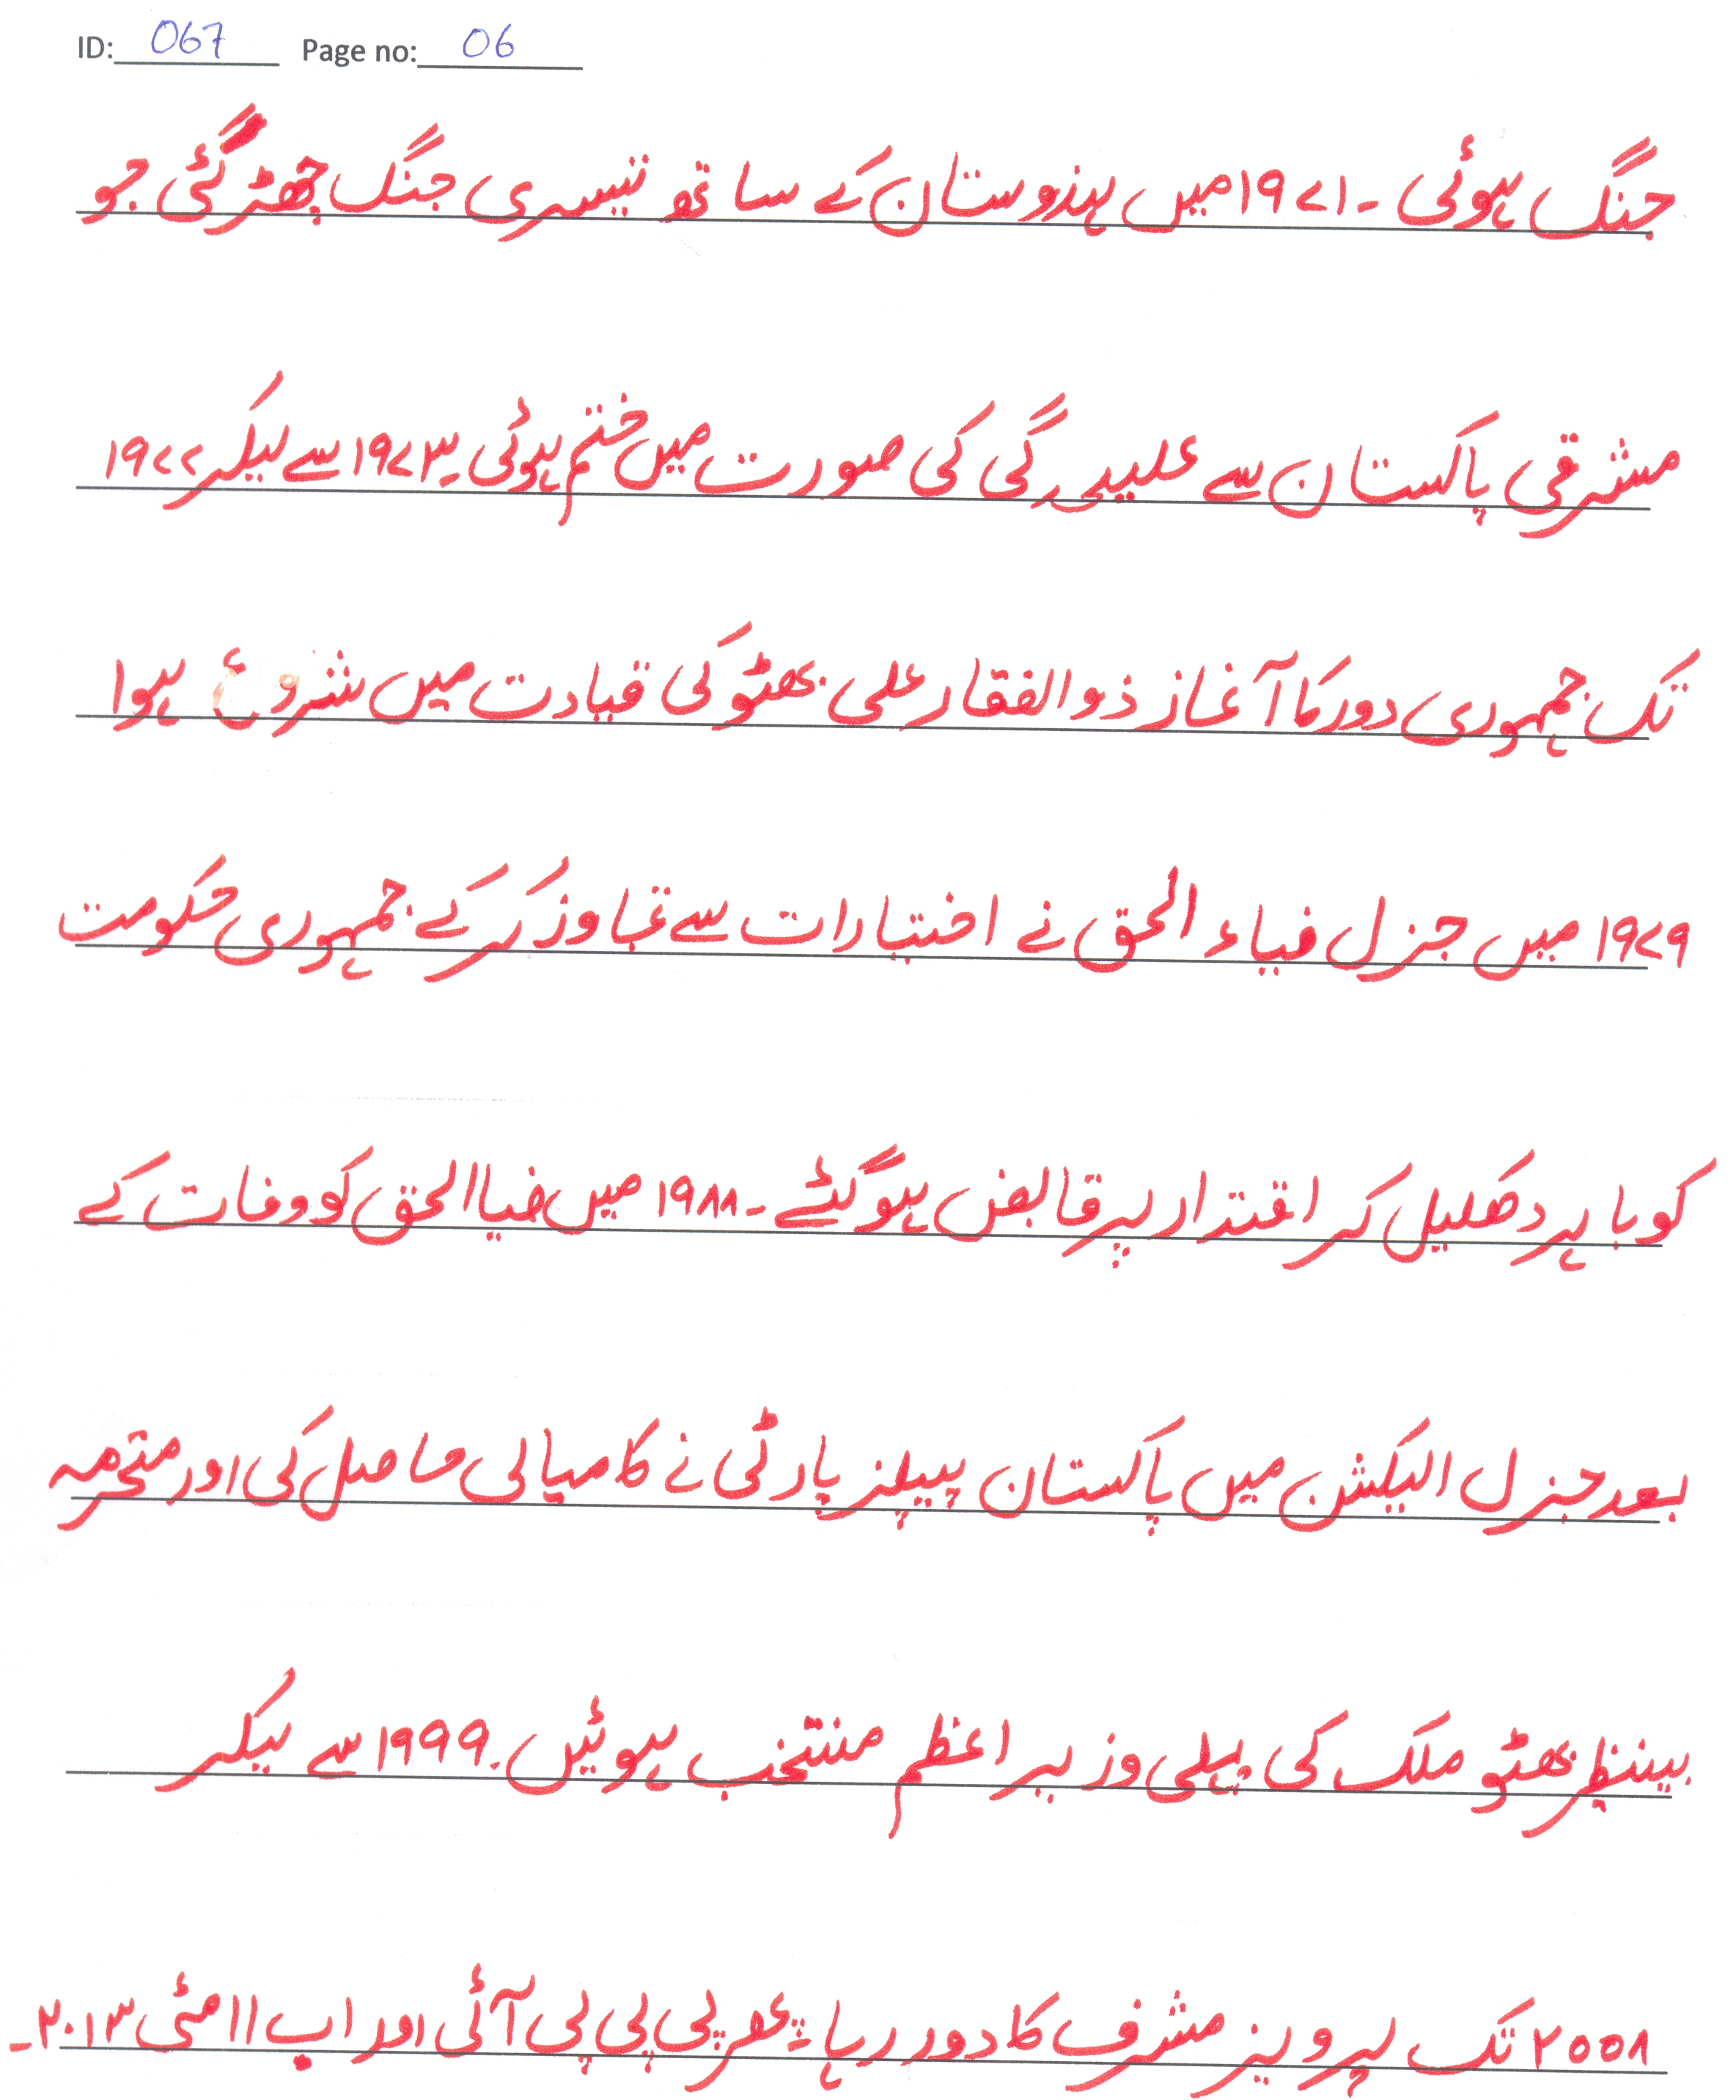 ID: 067 Page no: 06
جنگ ہوئی ۔ ۱۹۷۱ میں ہندوستان کے ساتھ تیسری جنگ چھڑ گئی جو
مشرقی پاکستان سے علیحدگی کی صورت میں ختم ہوئی ۔ ۱۹۷۳ سے لیکر ۱۹۷۷
تک جمہوری دور کا آغاز ذوالفقار علی بھٹو کی قیادت میں شروع ہوا
۱۹۷۹ میں جنرل ضیاء الحق نے اختیارات سے تجاوز کر کے جمہوری حکومت
کو باہر دھکیل کر اقتدار پر قابض ہوگئے ۔ ۱۹۸۸ میں ضیاالحق کو وفات کے
بعد جنرل الیکشن میں پاکستان پیپلز پارٹی نے کامیابی حاصل کی اور متحرمہ
بینظیر بھٹو ملک کی پہلی وزیر اعظم منتخب ہوئیں ۔ ۱۹۹۹ سے لیکر
۲۰۰۸ تک پرویز مشرف کا دور رہا پھر پی پی پی آئی اور اب ۱۱ مئی ۲۰۱۳ ۔